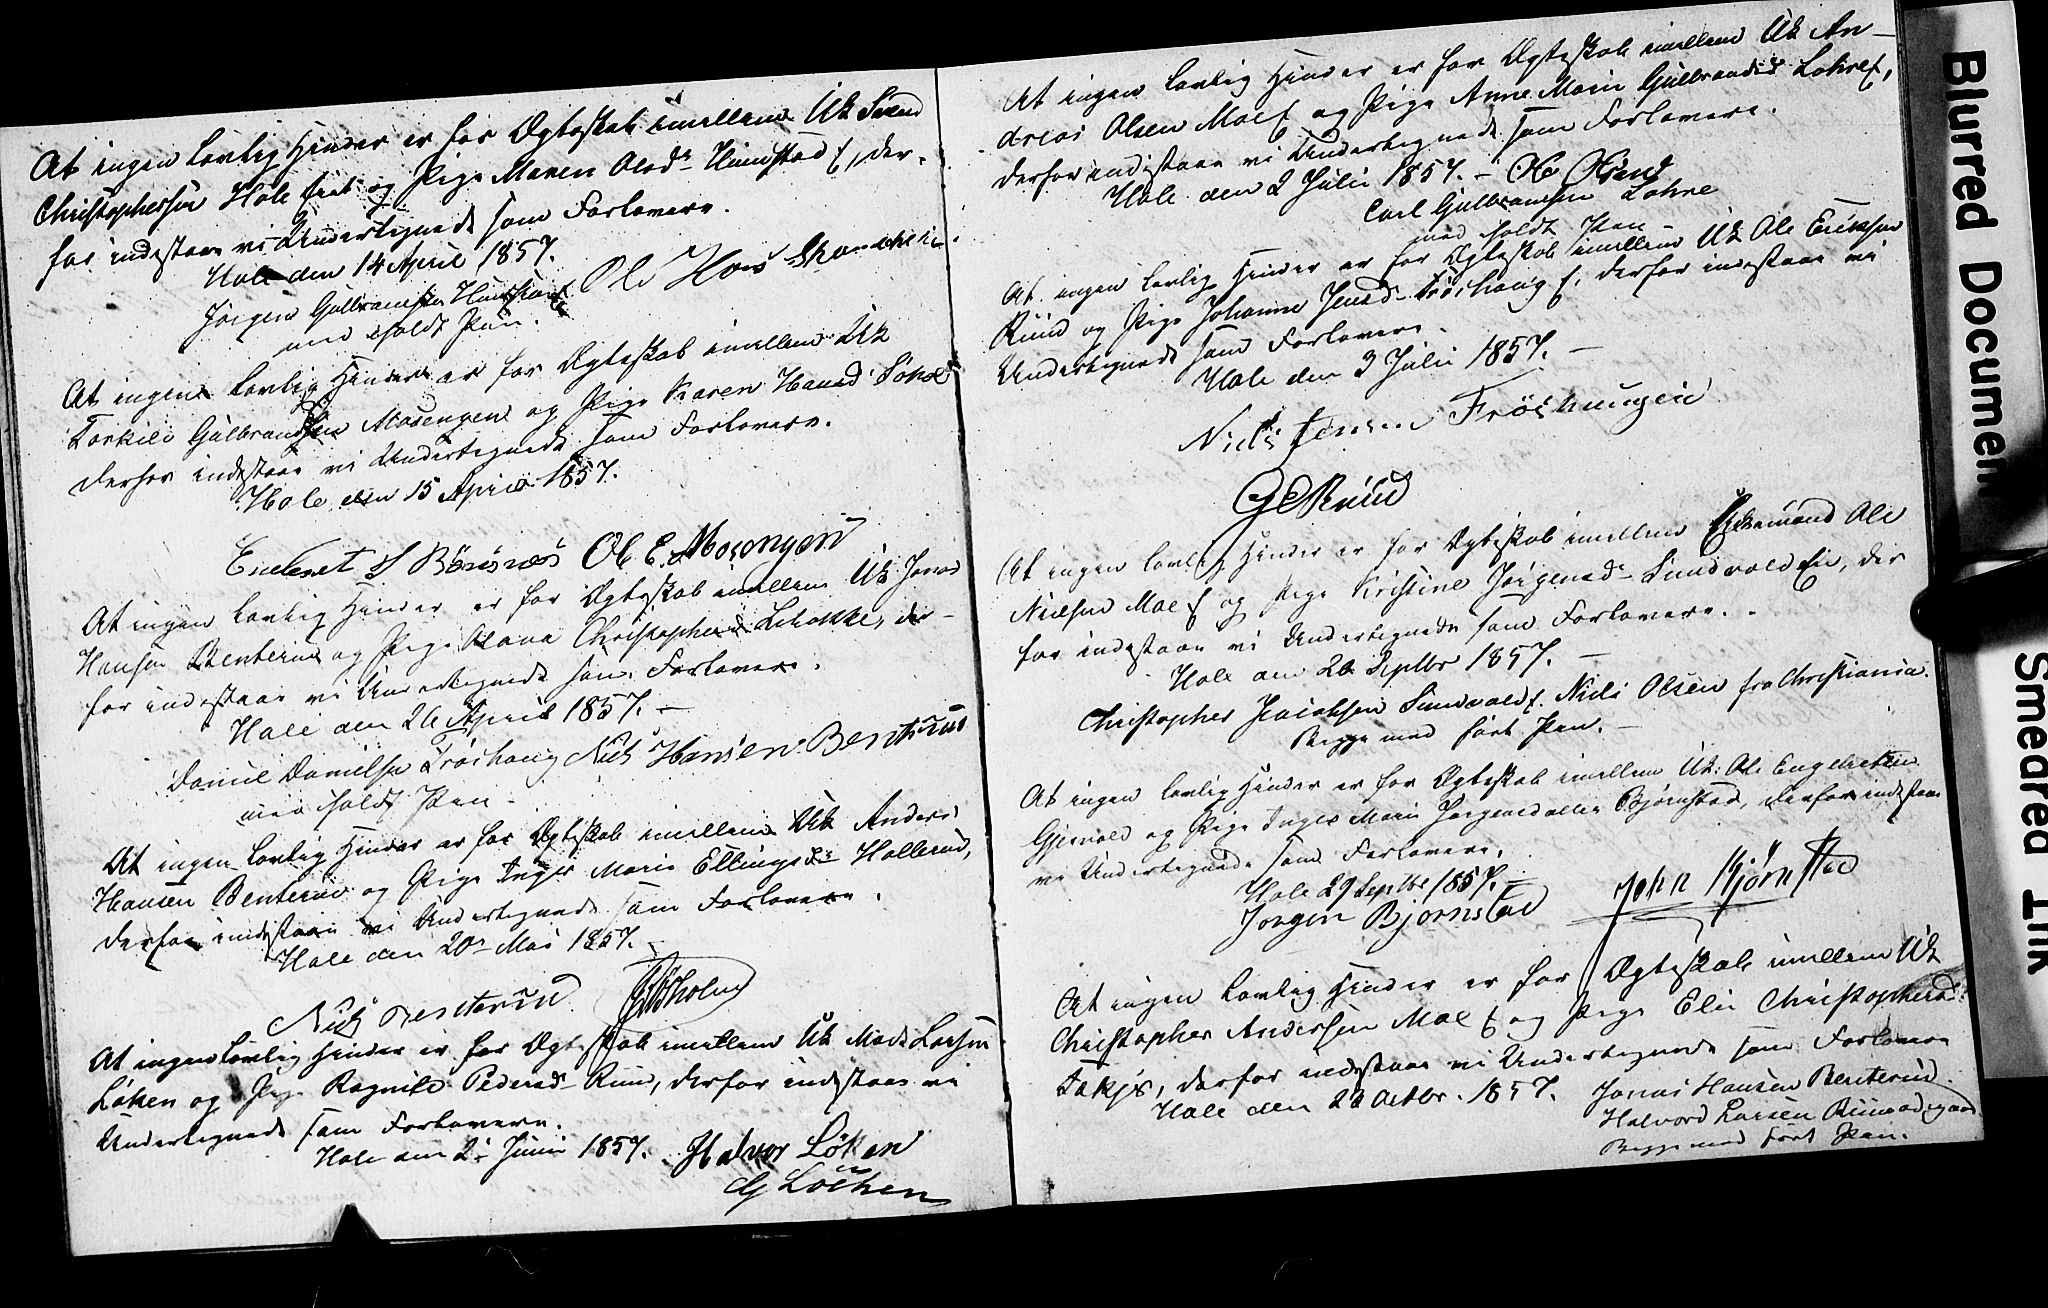 At ingen lovlig Hinder er for Ægteskab imellem Uk Svend
Christophersen Hole og Pige Maren Olsdr Himstad, der-
for indestaae vi Undertegnede som Forlovere.
Hole den 14 April 1857.
Jørgen Gulbrandsen Ole
med holdt Pen.
At ingen lovlig Hinder er for Ægteskab imellem Uk
Torkild Gulbrandsen Mosengen og Pige Karen Hansd
derfor indestaae vi Undertegnede som Forlovere.
Hole den 15 April 1857.
Engebret S Børsnes Ole E. Mosengen
At ingen lovlig Hinder er for Ægteskab imellem Uk Jonas
Hansen Benterud og Pige Olava Christophersd Lehokke, der-
for indestaae vi Undertegnede som Forlovere.
Hole den 26 April 1857.
Daniel Danielsen Frøshaug Niels Hansen Benterud
med holdt Pen.
At ingen lovlig Hinder er for Ægteskab imellem Uk Anders
Hansen Benterud og Pige Inger Marie Ellingsdr Hollerud,
derfor indestaae vi Undertegnede som Forlovere.
Hole den 20de Mai 1857.
Niels Benterud
At ingen lovlig Hinder er for Ægteskab imellem Uk Mads Larsen
Løken og Pige Ragnild Pedersd Ruud, derfor indestaae vi
Undertegnede som Forlovere.
Hole den 2 Juni 1857. Halvor Løken
G Löeken
At ingen lovlig Hinder er for Ægteskab imellem Uk An-
dreas Olsen Moe og Pige Anne Marie Gulbrandsd Lohre,
derfor indestaae vi Undertegnede som Forlovere.
Hole den 2 Juli 1857. Ole Olsen
Carl Gulbrandsen Lohre
med holdt Pen
At ingen lovlig Hinder er for Ægteskab imellem Uk Ole Eriksen
Ruud og Pige Johanne Jensd Frøshaug, derfor indestaae vi
Undertegnede som Forlovere.
Hole den 3 Juli 1857.
Niels Jensen Frøshaugen
G E Ruud
At ingen lovlig Hinder er for Ægteskab imellem Enkemand Ole
Nielsen Moe og Pige Kristine Jørgensd Sundvold, der
for indestaae vi Undertegnede som Forlovere.
Hole den 26 Septbr 1857.
Christopher Jacobsen Sundvold. Niels Olsen fra Christiania.
Begge med ført Pen.
At ingen lovlig Hinder er for Ægteskab imellem Uk: Ole Engebretsen
Gjesvold og Pige Inger Marie Jørgensdatter Bjørnstad, derfor indestaae
vi Undertegnede som Forlovere.
Hole 29 Septbr 1857.
Jørgen Bjørnstad John Bjørnstad
At ingen lovlig Hinder er for Ægteskab imellem Uk
Christopher Andersen Moe og Pige Elie Christophersd
derfor indestaae vi Undertegnede som Forlovere
Hole den 26 Octbr. 1857. Jonas Hansen Benterud.
Halvord Larsen
Begge med ført Pen.
Blurred Document
Smeared Ink